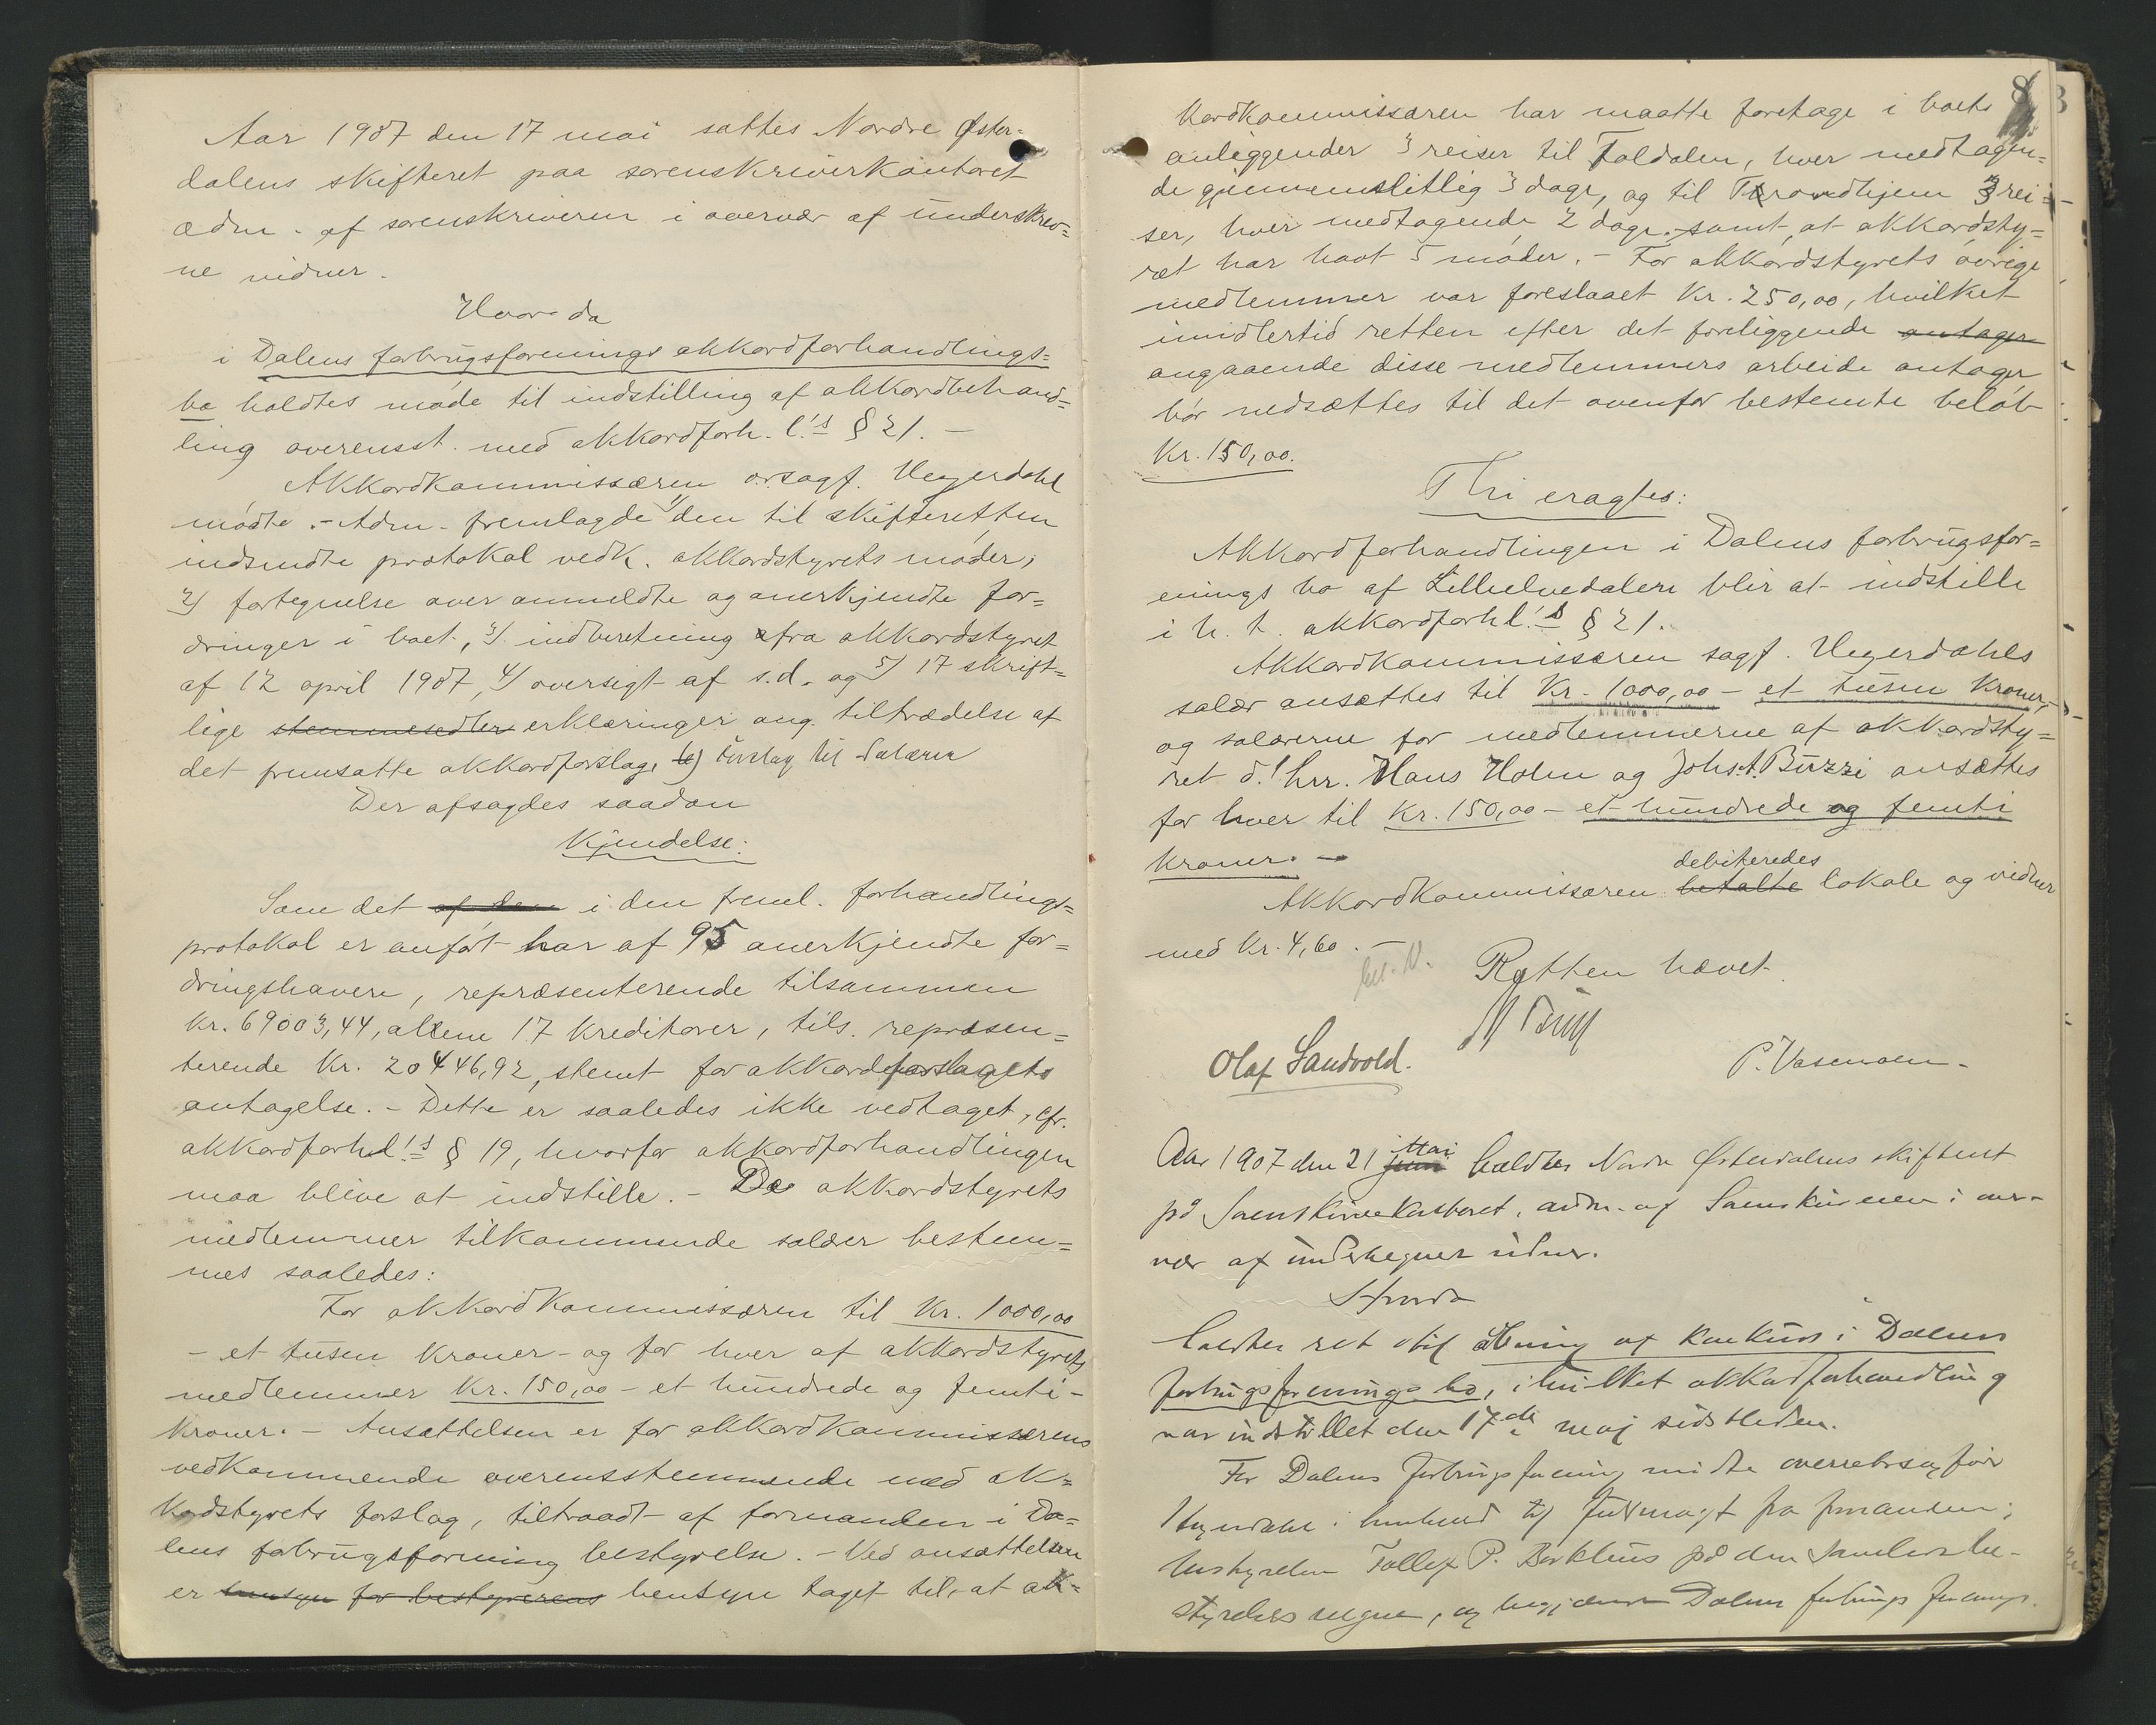 Aar 1907 den 17 mai sattes Nordre Øster=
dalens skifteret paa sorenskriverkontoret
adm. af sorenskriveren i overvær af underskrev=
ne vidner.
Hvor da
i Dalens forbrugsforenings akkordforhandlings=
bo holdtes møde til indstilling af akkordbehand=
ling overensst. med akkordforh. l.'s § 21. –
Akkordkommissæren o.r.sagf. Heyerdahl
mødte. – Adm. fremlagde 1) den til skifteretten
indsendte protokol vedk. akkordstyrets møder,
2) fortegnelse over anmeldte og anerkjendte for=
dringer i boet, 3) indberetning fra akkordstyret
af 12 april 1907, 4) oversigt af s.d. og 5) 17 skrift=
lige stemmesedler erklæringer ang. tiltrædelse af
det fremsatte akkordforslag, 6) Forslag til Salærer
Der afsagdes saadan
Kjendelse:
Som det af den i den freml. forhandlings=
protokol er anført har af 95 anerkjendte for=
dringshavere, repræsenterende tilsammen
Kr. 69003,44, alene 17 kreditorer, tils. repræsen=
terende Kr. 20446,92, stemt for akkordforslagets
antagelse. – Dette er saaledes ikke vedtaget, cfr.
akkordforhl.'s § 19, hvorfor akkordforhandlingen
maa blive at indstille. – De akkordstyrets
medlemmer tilkommende salær bestem=
mes saaledes:
For akkordkommissæren til Kr. 1000,00
– et tusen kroner – og for hver af akkordstyrets
medlemmer Kr. 150,00 – et hundrede og femti –
kroner. – Ansættelsen er for akkordkommissærens
vedkommende overensstemmende med ak=
kordstyrets forslag, tiltraadt af formanden i Da=
lens forbrugsforening bestyrelse. – Ved ansættelsen
er hensyn for bestyrerens hensyn taget til, at ak=
8
kordkommissæren har maatte foretage i boets
anliggender 3 reiser til Foldalen, hver medtagen=
de gjennemsnitlig 3 dage, og til Trondhjem 3 rei=
ser, hver medtagende 2 dage, samt at akkordsty=
ret har havt 5 møder. – For akkordstyrets øvrige
medlemmer var foreslaaet Kr. 250,00, hvilket
imidlertid retten efter det foreliggende antager
angaaende disse medlemmers arbeide antager
bør nedsættes til det ovenfor bestemte beløb
Kr. 150,00.
Thi eragtes:
Akkordforhandlingen i Dalens forbrugsfor=
enings bo af Lilleelvedalen blir at indstille
i h. t. akkordforhl.'s § 21.
Akkordkommissæren sagf. Heyerdahls
salær ansættes til Kr. 1000,00 – et tusen kroner, –
og salærerne for medlemmerne af akkordsty=
ret d'hrr. Hans Holm og Johs. A. Buzzi ansættes
for hver til Kr. 150,00 – et hundrede og femti
kroner. –
debiteredes
Akkordkommissæren betalte lokale og vidner
med Kr. 4,60. –
Retten hævet.
Olaf Sandvold.
P. Vasmoen.
Mai
Aar 1907 den 21 juni holdtes Nordre Østerdalens skifteret
på Sorenskriverkontoret, adm. af Sorenskriveren i over-
vær af undertegnede vidner.
Hvorda
holdtes ret til åbning af konkurs i Dalens
forbrugsforenings bo, i hvilket akkordforhandling
var indstillet den 17de maj sidstleden.
For Dalens forbrugsforening mødte overretssagfører
Heyerdahl i henhold til fuldmagt fra formanden i
bestyrelsen Tollef P. Berklius på den samlede be-
styrelses vegne, og begjærede Dalens forbrugsforenings